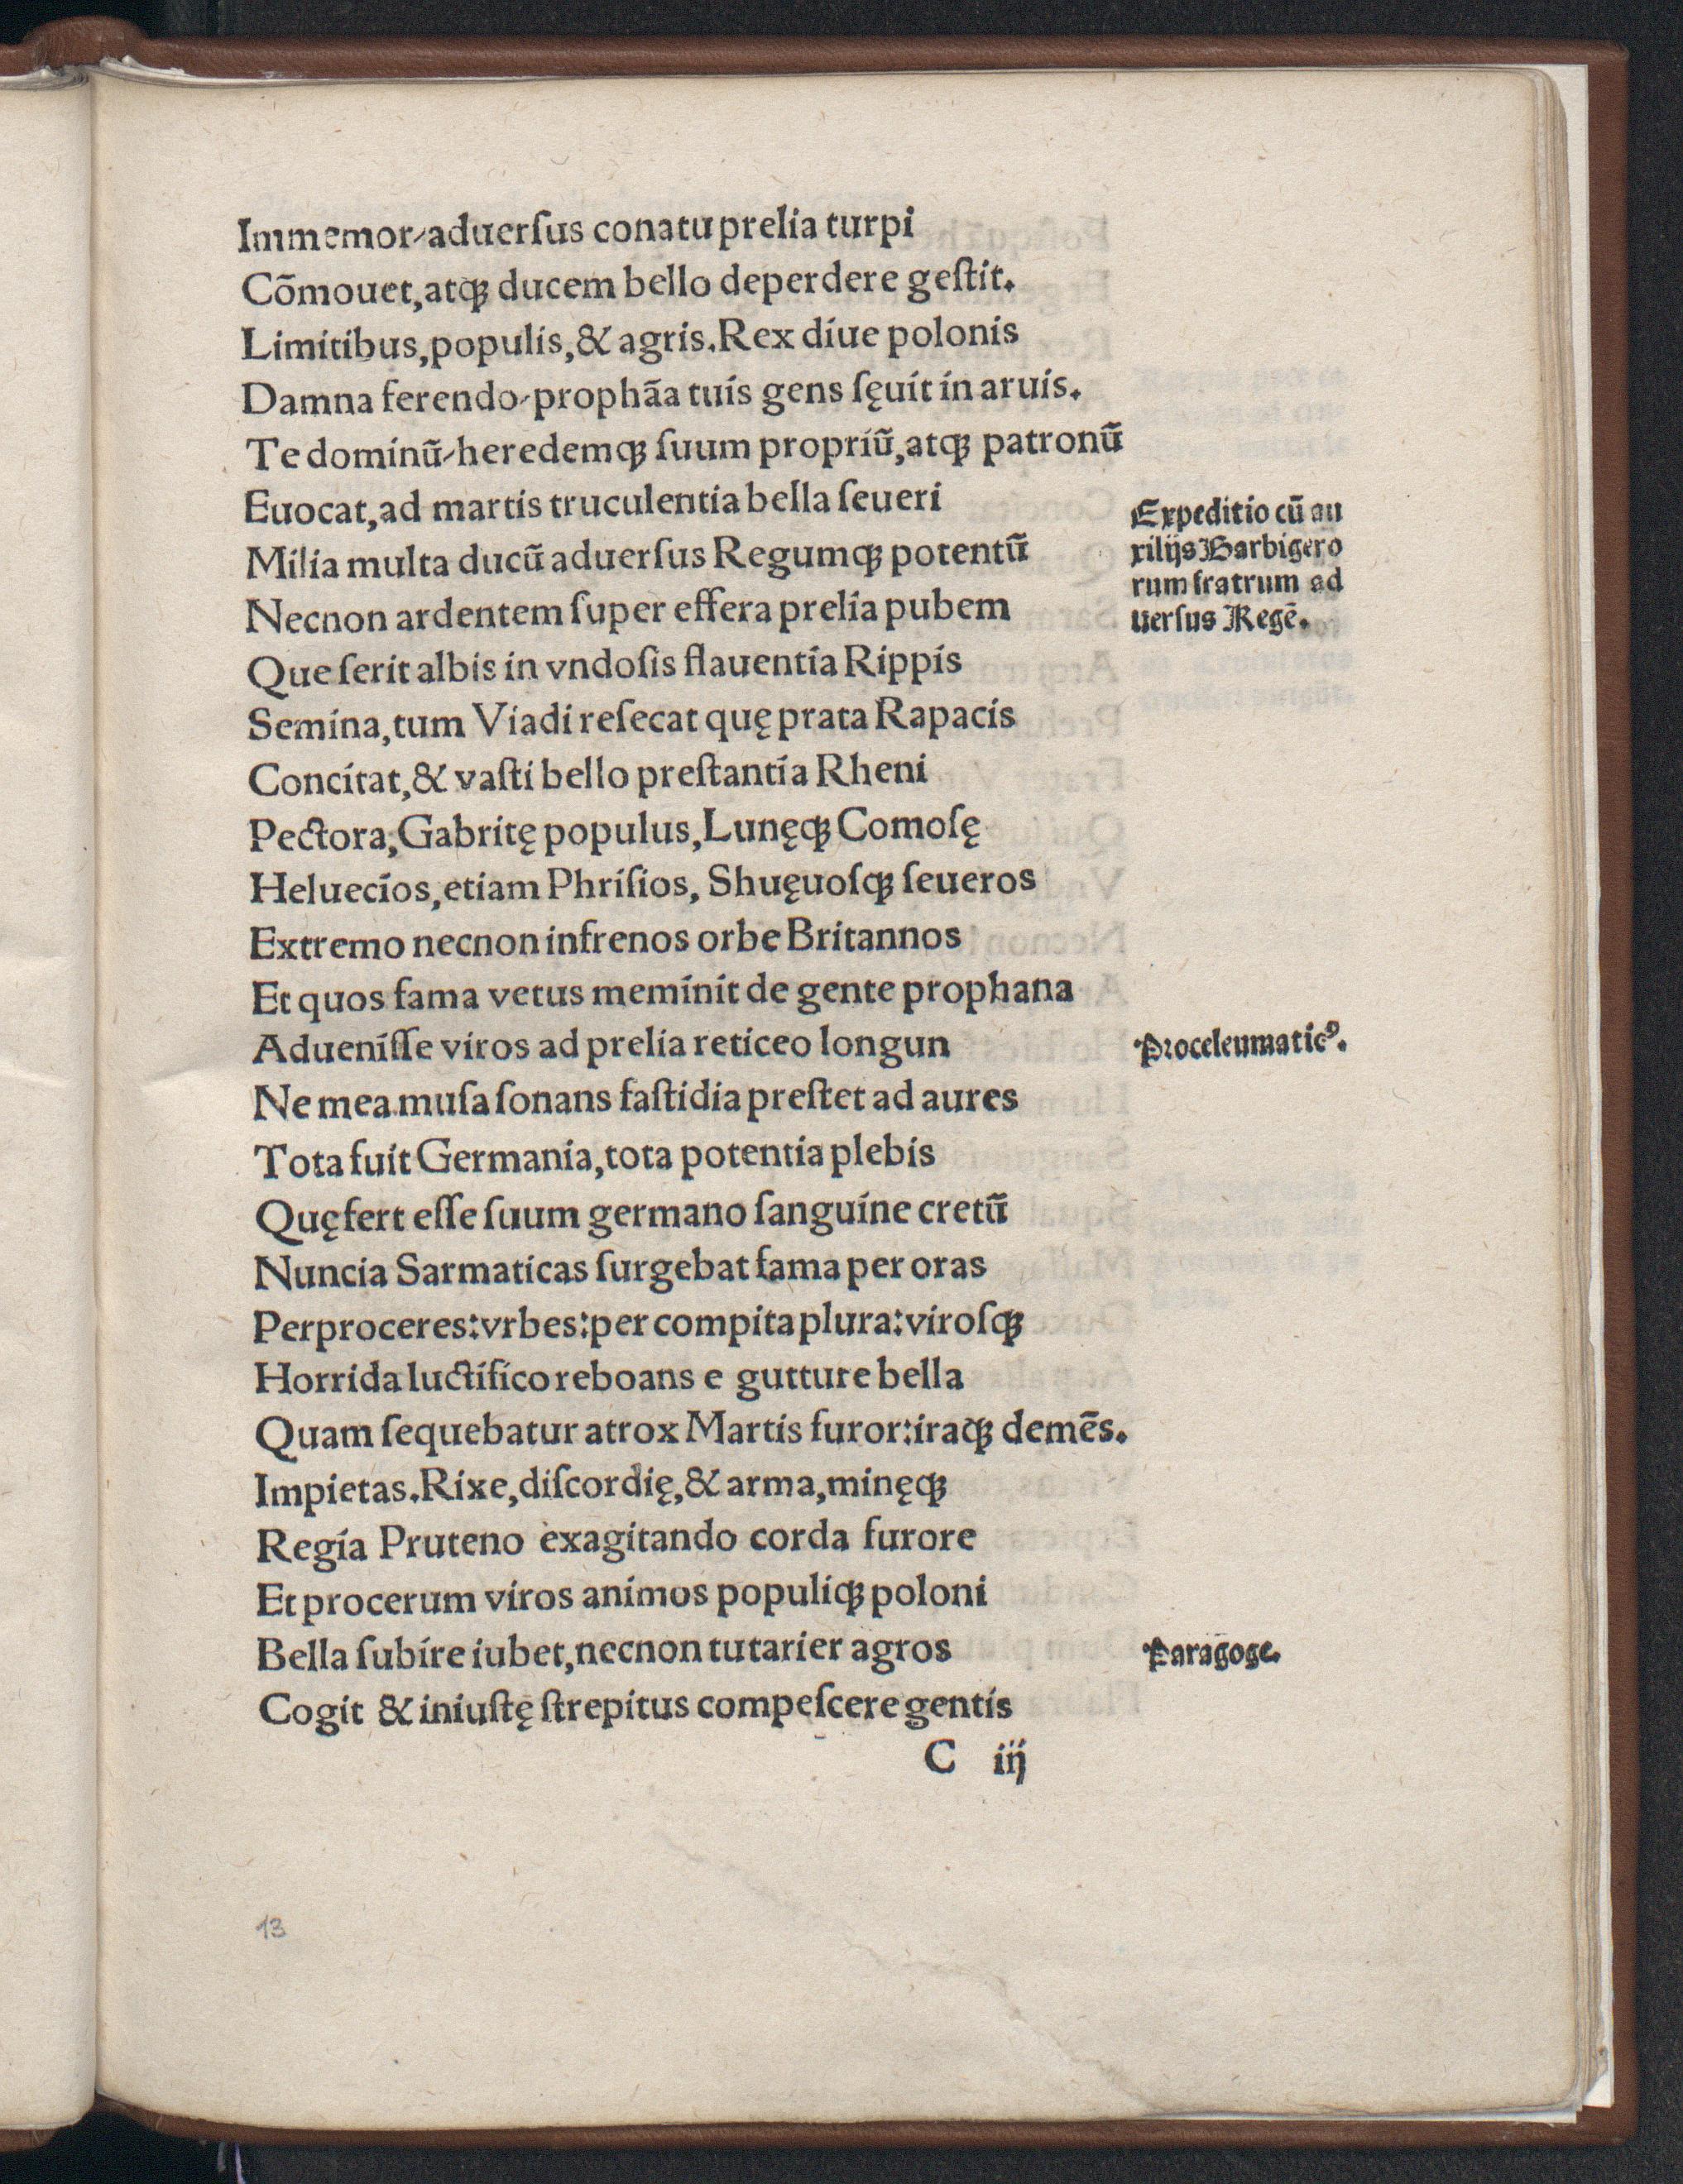 Immemor⸝aduerſus conatu prelia turpi
Cõmouet, atqꝫ ducem bello deperdere geſtit.
Limitibus, populis, & agris. Rex diue polonis
Damna ferendo⸝prophãa tuis gens ſęuit in aruis.
Te dominũ⸝heredemqꝫ ſuum propriũ, atqꝫ patronũ
Euocat, ad martis truculentia bella ſeueri
Milia multa ducũ aduerſus Regumqꝫ potentũ
Necnon ardentem ſuper effera prelia pubem
Que ſerit albis in vndoſis flauentia Rippis
Semina, tum Viadi reſecat quę prata Rapacis
Concitat, & vaſti bello preſtantia Rheni
Pectora, Gabritę populus, Lunęqꝫ Comoſę
Heluecios, etiam Phriſios, Shuęuoſqꝫ ſeueros
Extremo necnon infrenos orbe Britannos
Et quos fama vetus meminit de gente prophana
Adueniſſe viros ad prelia reticeo longun
Ne mea muſa ſonans faſtidia preſtet ad aures
Tota fuit Germania, tota potentia plebis
Quę fert eſſe ſuum germano ſanguine cretũ
Nuncia Sarmaticas ſurgebat fama per oras
Perproceres: vrbes: per compita plura: viroſqꝫ
Horrida luctifico reboans e gutture bella
Quam ſequebatur atrox Martis furor: iraqꝫ demẽs.
Impietas. Rixe, diſcordię, & arma, minęqꝫ
Regia Pruteno exagitando corda furore
Et procerum viros animos populiqꝫ poloni
Bella ſubire iubet, necnon tutarier agros
Cogit & iniuſtę ſtrepitus compeſcere gentis
C iij
Expeditio cũ au
xilijs Barbigero
rum fratrum ad
uerſus Regẽ.
Proceleumaticꝰ.
Paragoge.
13